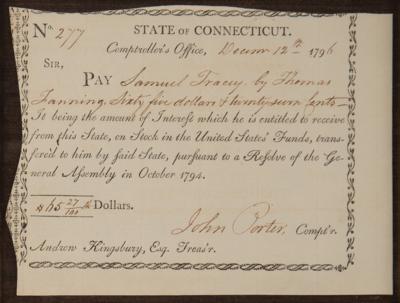 No. 277
STATE OF CONNECTICUT.
Comptroller's Office, Decemr 12th 1796
SIR,
PAY Samuel Tracey by Thomas
Fanning, Sixty five dollars & twenty seven Cents—
To being the amount of Interest which he is entitled to receive
from this State, on Stock in the United States' Funds, trans-
fered to him by said State, pursuant to a Resolve of the Ge-
neral Assembly in October 1794.
$65 27/100 Dollars.
John Porter, Compt'r.
Andrew Kingsbury, Esq. Treas'r.